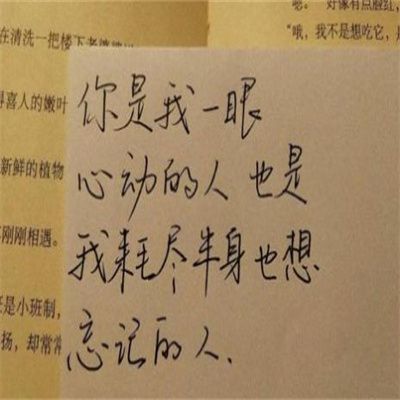 嗯。“好像有点脸红，
“哦，我不是想吃它，是
在清洗一把楼下老婆婆
得喜人的嫩叶
新鲜的植物
刚刚相遇。
是小班制，
扬，却常常
你是我一眼
心动的人也是
我耗尽半身也想
忘记的人.